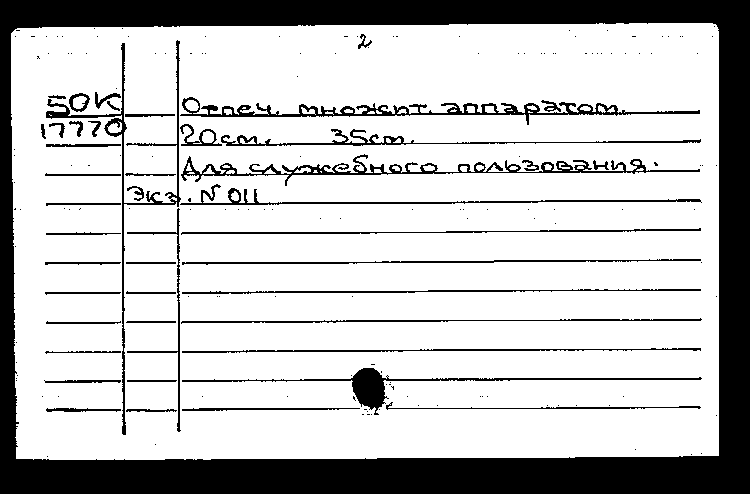 2
50К Отпеч. множит. аппаратом.
17770 20см. 35см.
Для служебного пользования.
Экз. № 011